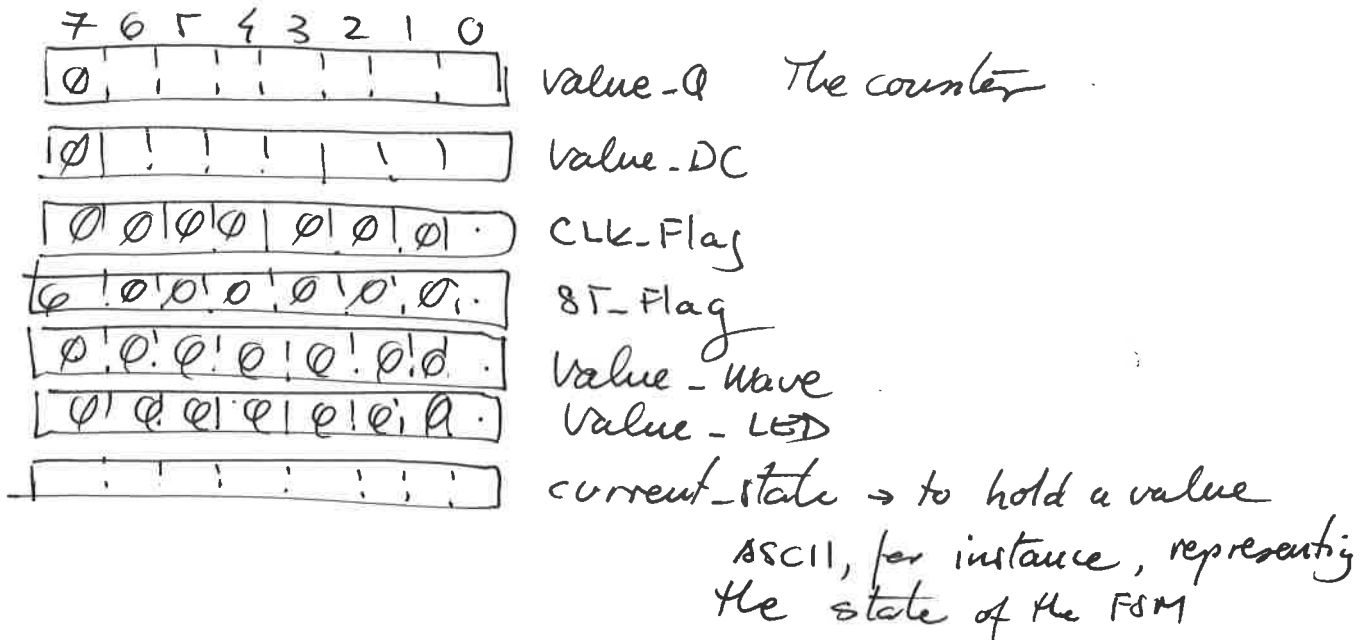 7 6 5 4 3 2 1 0
0 value_Q The counter
0 value_DC
0 0 0 0 0 0 0 . CLK_Flag
0 0 0 0 0 0 0 . ST_Flag
0 0 0 0 0 0 0 . Value_Wave
0 0 0 0 0 0 0 . Value_LED
current_state → to hold a value
ASCII, for instance, representing
the state of the FSM